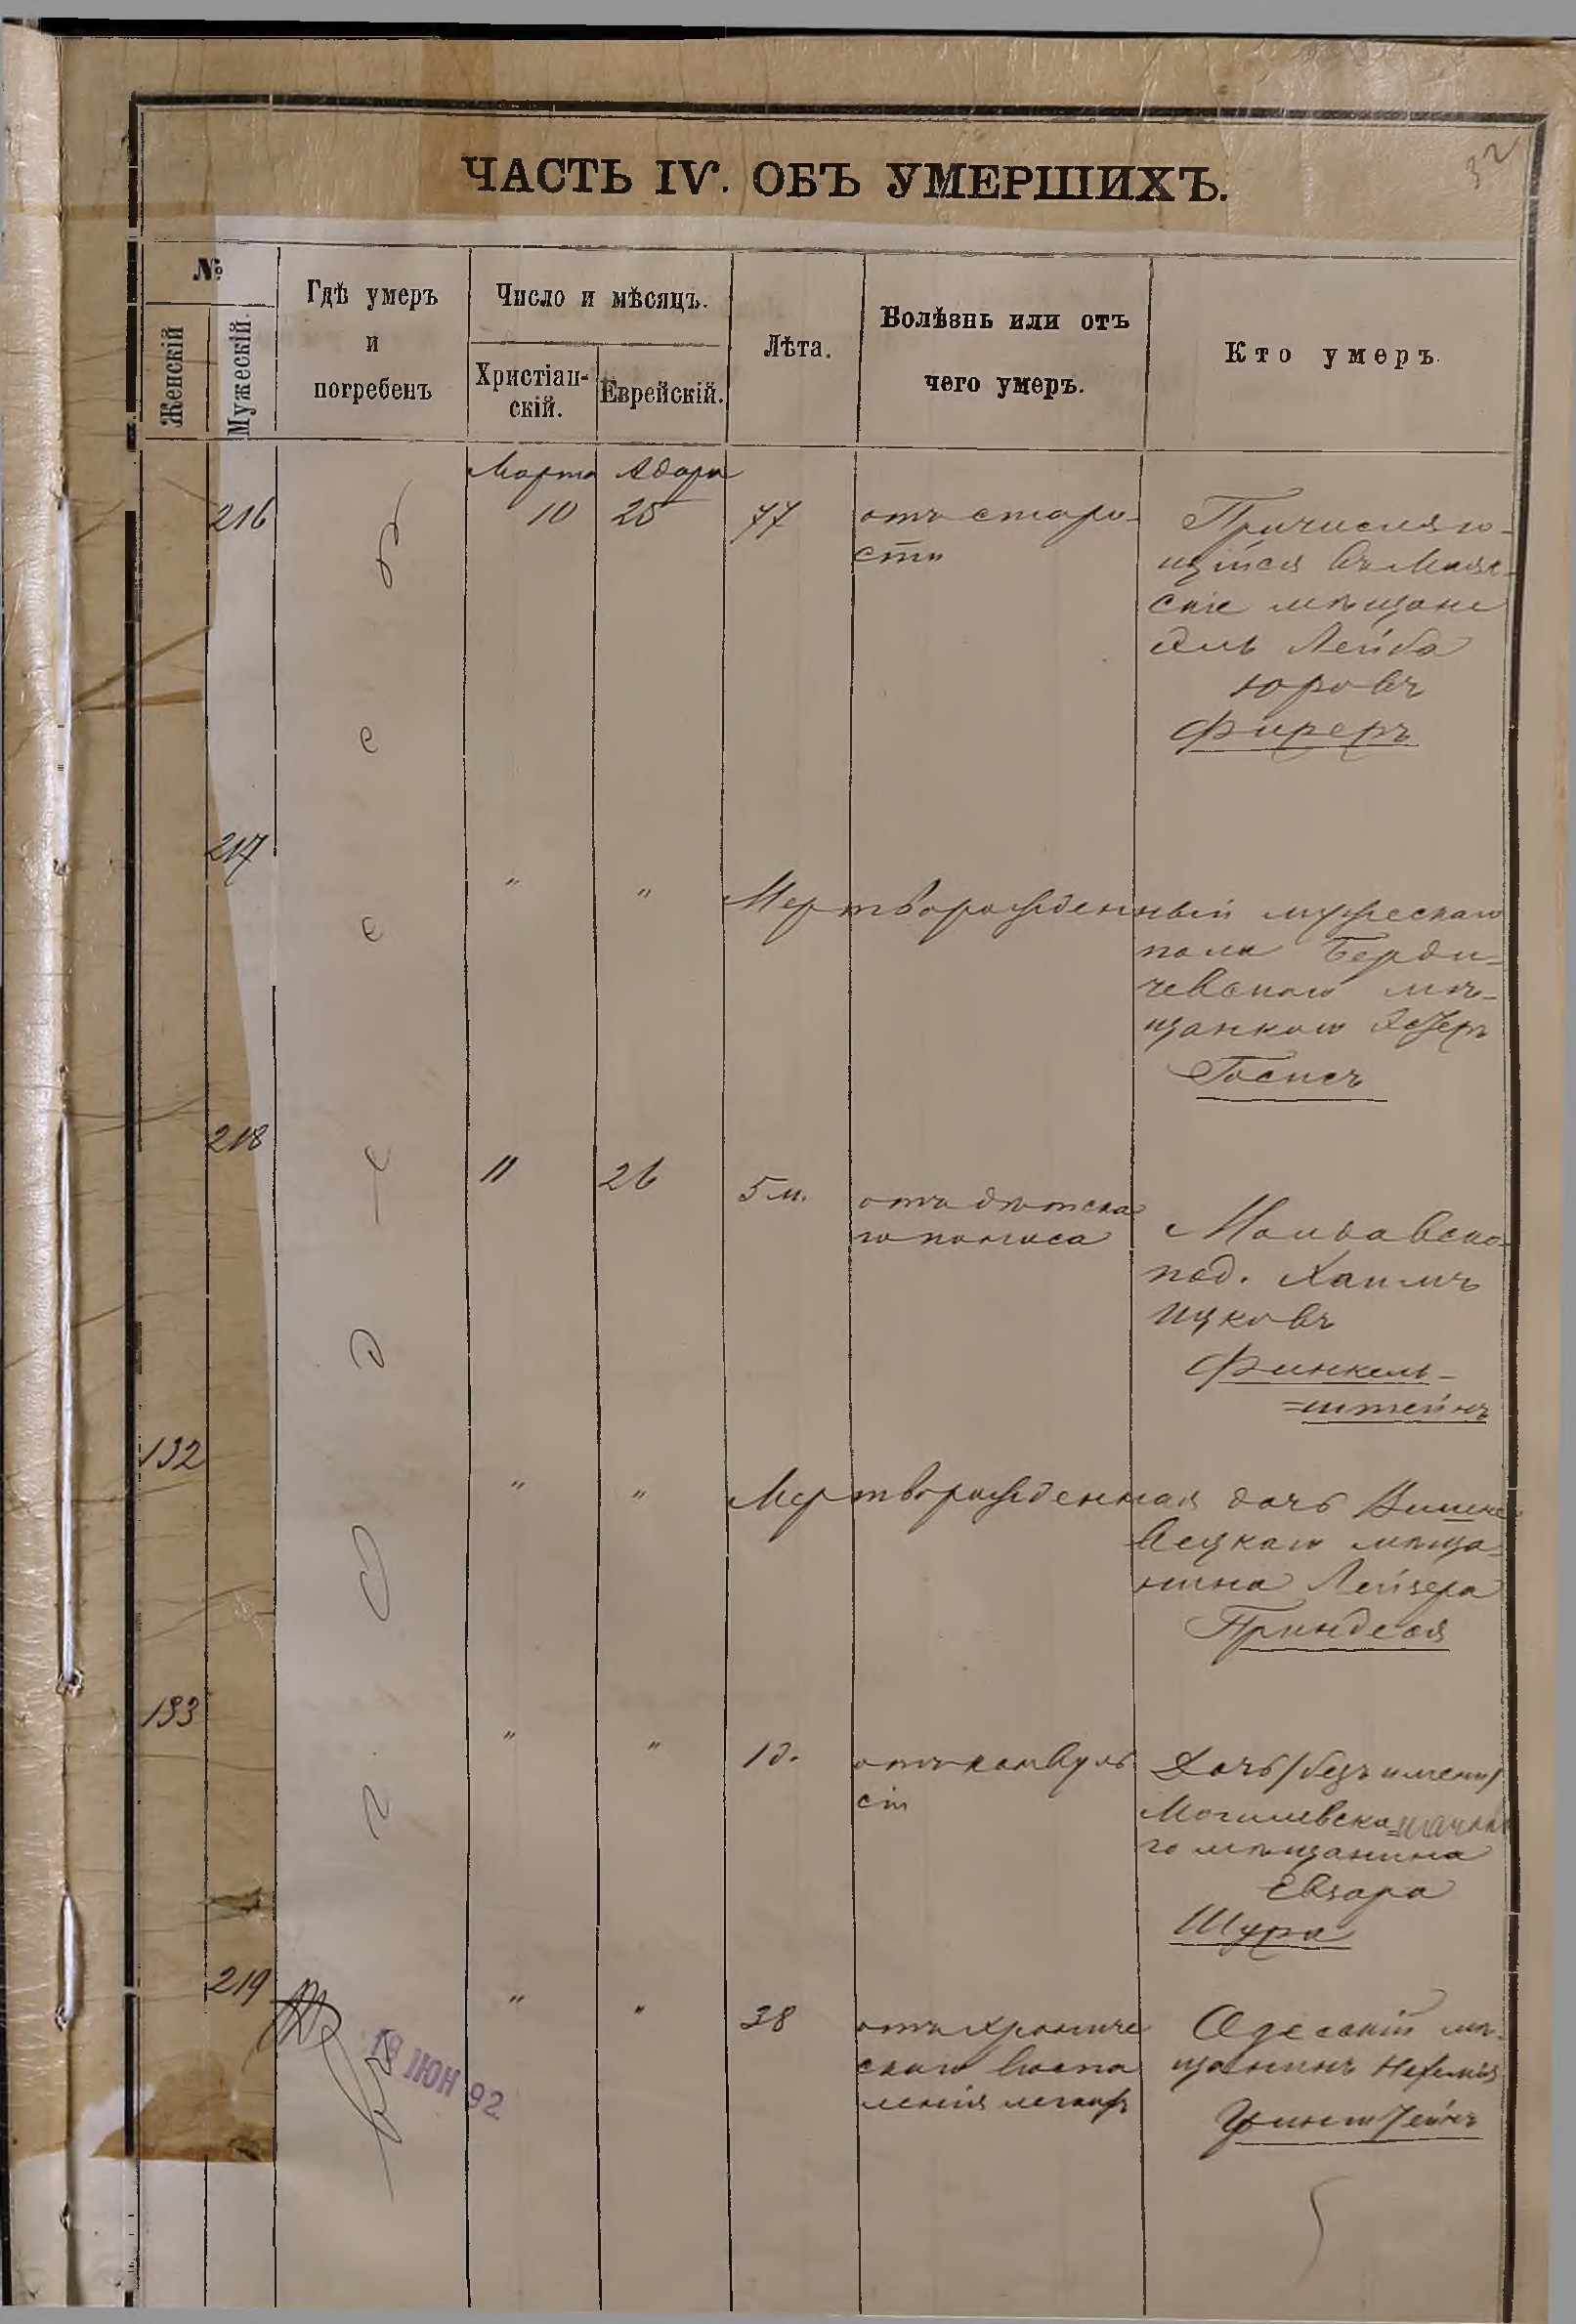 32
ЧАСТЬ IV. ОБЪ УМЕРШИХЪ.
№
Женскій
Мужескій.
Гдѣ умеръ
и
погребенъ
Число и мѣсяцъ.
Христіан-
скій.
Еврейскій.
Лѣта.
Болѣзнь или отъ
чего умеръ.
Кто умеръ.
Марта Адара
216 10 25 77 отъ старо-
сти
Причисляю-
щійся въ Маяк-
скіе мѣщане
Лейба
Юровъ
Фиреръ
217 " " Мертворожденный мужескаго
пола Берди-
чевскаго мѣ-
щанкою
218 11 26 5 м. отъ дѣтска
го поноса
Молдавско-
под. Хаимъ
Ицковъ
Финкель-
=штейнъ
132 " " Мертворожденная дочь Вишне
вецкаго мѣща-
нина Лейзера
133 " " 1 д. отъ конвуль
сій
Дочь /безъ имени/
Могилевска=
го мѣщанина
Евзара
Шура
219 " " 38 отъ хрониче
скаго воспа
ленія легкихъ
Одесскій мѣ-
щанинъ Нехемія
б
е
е
с
д
О
г
18 ІЮН 92